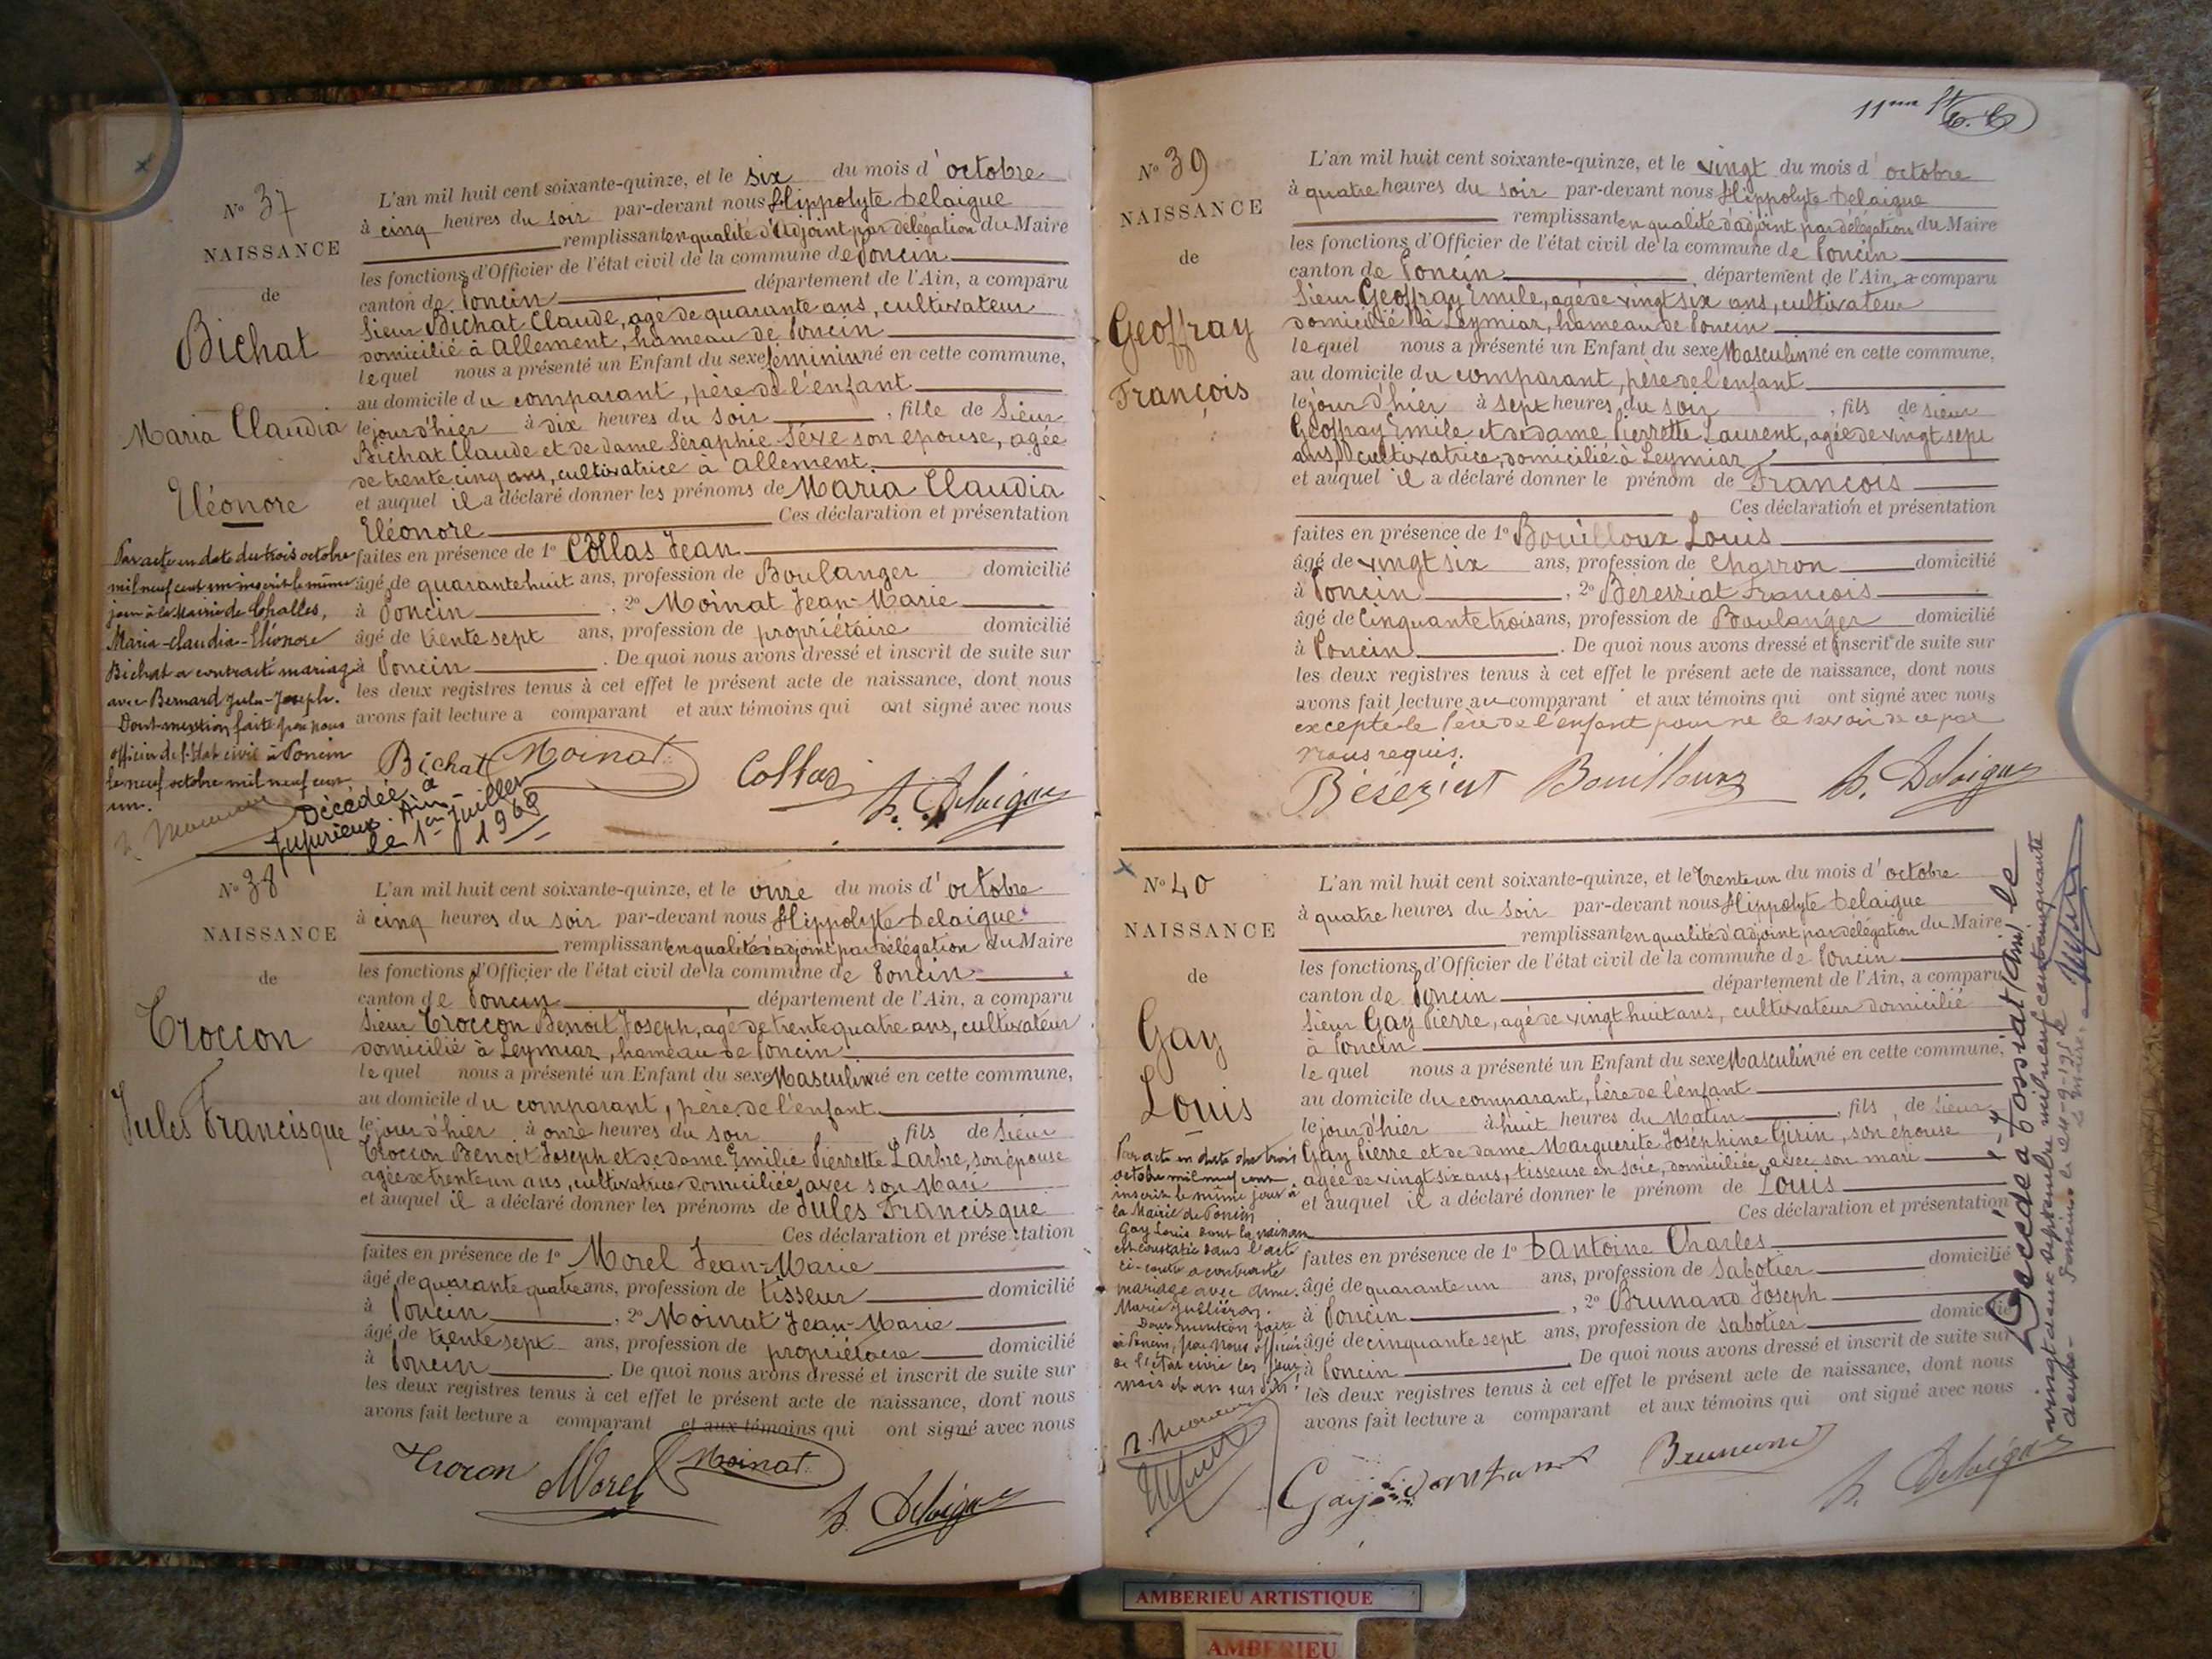 N° 37
NAISSANCE
de
Bichat
Maria Claudia
Eléonore
L'an mil huit cent soixante-quinze, et le six du mois d'octobre
à cinq heures du soir par-devant nous Hippolyte Delaigue
remplissant en qualité d'Adjoint par délégation du Maire
les fonctions d'Officier de l'état civil de la commune de Poncin
canton de Poncin département de l'Ain, a comparu
Sieur Bichat Claude, agé de quarante ans, cultivateur
domicilié à Allement, hameau de Poncin
lequel nous a présenté un Enfant du sexe féminin né en cette commune,
au domicile du comparant, père de l'enfant
le jour d'hier à dix heures du soir, fille de Sieur
Bichat Claude et de dame Séraphie Sève son épouse, agée
de trente cinq ans, cultivatrice à Allement.
et auquel il a déclaré donner les prénoms de Maria Claudia
Eléonore Ces déclaration et présentation
faites en présence de 1° Collas Jean
âgé de quarante huit ans, profession de Boulanger domicilié
à Poncin, 2° Moinat Jean-Marie
âgé de trente sept ans, profession de propriétaire domicilié
à Poncin. De quoi nous avons dressé et inscrit de suite sur
les deux registres tenus à cet effet le présent acte de naissance, dont nous
avons fait lecture a comparant et aux témoins qui ont signé avec nous
Bichat Moinat Collas h. Delaigue
Par acte en date du trois octobre
mil neuf cent un inscrit le même
jour à la Mairie de Challes,
Maria-Claudia-Eléonore
Bichat a contracté mariage
avec Bernard Jules-Joseph.
Dont mention faite par nous
officier de l'état civil à Poncin
le neuf octobre mil neuf cent
un.
Décédée à
Jujurieux. Ain-
le 1er juillet
196
N° 38
NAISSANCE
de
Croccon
Jules Francisque
L'an mil huit cent soixante-quinze, et le onze du mois d'octobre
à cinq heures du soir par-devant nous Hippolyte Delaigue
remplissant en qualité d'adjoint par délégation du Maire
les fonctions d'Officier de l'état civil de la commune de Poncin
canton de Poncin département de l'Ain, a comparu
Sieur Croccon Benoit Joseph, agé de trente quatre ans, cultivateur
domicilié à Leymiaz, hameau de Poncin
lequel nous a présenté un Enfant du sexe Masculin né en cette commune,
au domicile du comparant, père de l'enfant
le jour d'hier à onze heures du soir fils de Sieur
Croccon Benoit Joseph et de dame Emilie Pierrette Larbre, son épouse
agée de trente un ans, cultivatrice domiciliée avec son Mari
et auquel il a déclaré donner les prénoms de Jules Francisque
Ces déclaration et présentation
faites en présence de 1° Morel Jean-Marie
âgé de quarante quatre ans, profession de tisseur domicilié
à Poncin, 2° Moinat Jean-Marie
âgé de trente sept ans, profession de propriétaire domicilié
à Poncin. De quoi nous avons dressé et inscrit de suite sur
les deux registres tenus à cet effet le présent acte de naissance, dont nous
avons fait lecture a comparant et aux témoins qui ont signé avec nous
Morel Moinat h. Delaigue
N° 39
NAISSANCE
de
Geoffray
François
L'an mil huit cent soixante-quinze, et le vingt du mois d'octobre
à quatre heures du soir par-devant nous Hippolyte Delaigue
remplissant en qualité d'adjoint par délégation du Maire
les fonctions d'Officier de l'état civil de la commune de Poncin
canton de Poncin département de l'Ain, a comparu
Sieur Geoffray Emile, agé de vingt six ans, cultivateur
domicilié à Leymiaz, hameau de Poncin
lequel nous a présenté un Enfant du sexe Masculin né en cette commune,
au domicile du comparant, père de l'enfant
le jour d'hier à sept heures du soir, fils de Sieur
Geoffray Emile et de dame Pierrette Laurent, agée de vingt sept
ans, cultivatrice, domicilié à Leymiaz
et auquel il a déclaré donner le prénom de François
Ces déclaration et présentation
faites en présence de 1° Bouilloux Louis
âgé de vingt six ans, profession de Charron domicilié
à Poncin, 2° Béreziat François
âgé de Cinquante trois ans, profession de Boulanger domicilié
à Poncin. De quoi nous avons dressé et inscrit de suite sur
les deux registres tenus à cet effet le présent acte de naissance, dont nous
avons fait lecture au comparant et aux témoins qui ont signé avec nous
excepté le Père de l'enfant pour ne le savoir de ce par
nous requis.
Béreziat Bouilloux h. Delaigue
N° 40
NAISSANCE
de
Gay
Louis
L'an mil huit cent soixante-quinze, et le Trente un du mois d'octobre
à quatre heures du soir par-devant nous Hippolyte Delaigue
remplissant en qualité d'adjoint par délégation du Maire
les fonctions d'Officier de l'état civil de la commune de Poncin
canton de Poncin département de l'Ain, a comparu
Sieur Gay Pierre, agé de vingt huit ans, cultivateur domicilié
à Poncin
lequel nous a présenté un Enfant du sexe Masculin né en cette commune,
au domicile du comparant, Père de l'enfant
le jour d'hier à huit heures du Matin, fils de Sieur
Gay Pierre et de dame Marguerite Joséphine Girin, son épouse
agée de vingt six ans, tisseuse en soie, domiciliée avec son mari
et auquel il a déclaré donner le prénom de Louis
Ces déclaration et présentation
faites en présence de 1° Dantoine Charles
âgé de quarante un ans, profession de Sabotier domicilié
à Poncin, 2° Brunand Joseph
âgé de cinquante sept ans, profession de sabotier domicilié
à Poncin De quoi nous avons dressé et inscrit de suite sur
les deux registres tenus à cet effet le présent acte de naissance, dont nous
avons fait lecture a comparant et aux témoins qui ont signé avec nous
Gay h. Delaigue
Par acte en date du trois
octobre mil neuf cent
inscrit le même jour à
la Mairie de Poncin
Gay Louis dont la naissance
est constatée dans l'acte
ci-contre a contracté
mariage avec
Marie
Dont mention faite
à Poncin, par Nous officier
de l'état civil les jour
mois et an sus dits.
Décédé à Tossiat (Ain) le
vingt deux septembre mil neuf cent cinquante
deux.-
Poncin le 24-9-1952
Le Maire,
AMBERIEU ARTISTIQUE
AMBERIEU